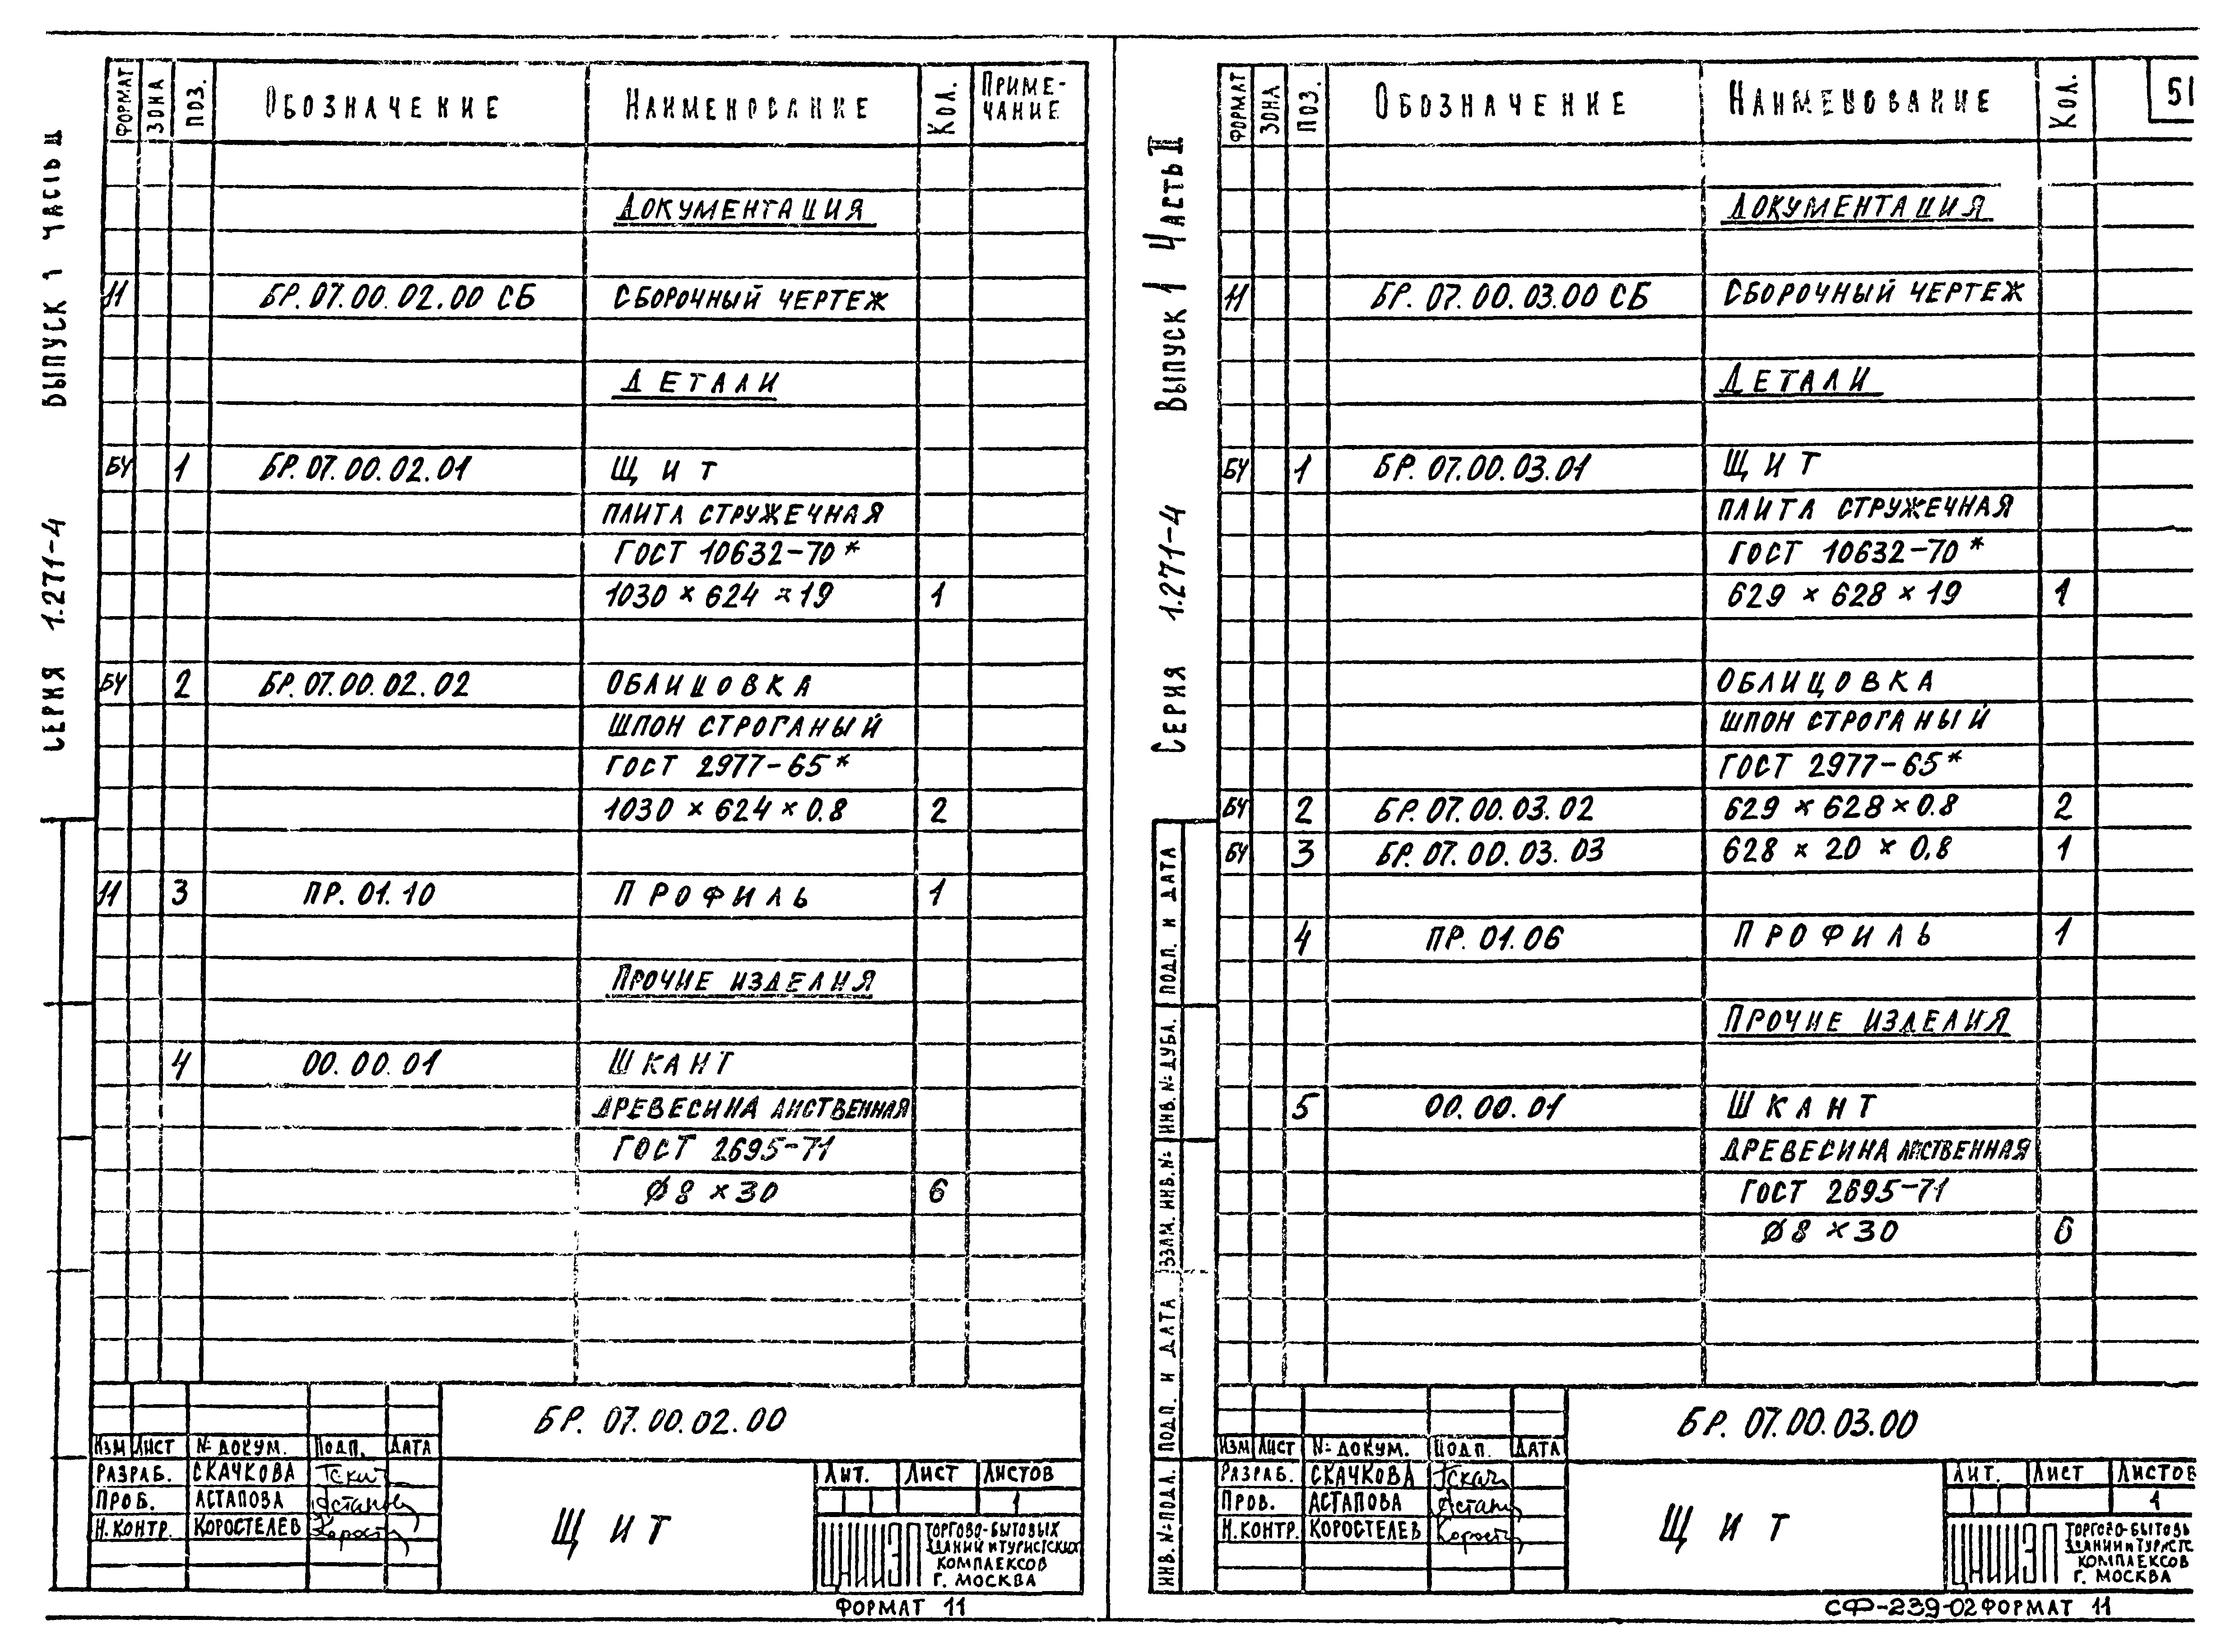 СЕРИЯ 1.271-4 ВЫПУСК 1 ЧАСТЬ II
ФОРМАТ ЗОНА ПОЗ. ОБОЗНАЧЕНИЕ НАИМЕНОВАНИЕ КОЛ. ПРИМЕ-
ЧАНИЕ
ДОКУМЕНТАЦИЯ
11 БР.07.00.02.00 СБ СБОРОЧНЫЙ ЧЕРТЕЖ
ДЕТАЛИ
БЧ 1 БР.07.00.02.01 ЩИТ
ПЛИТА СТРУЖЕЧНАЯ
ГОСТ 10632-70*
1030 × 624 × 19 1
БЧ 2 БР.07.00.02.02 ОБЛИЦОВКА
ШПОН СТРОГАНЫЙ
ГОСТ 2977-65*
1030 × 624 × 0.8 2
11 3 ПР.01.10 ПРОФИЛЬ 1
ПРОЧИЕ ИЗДЕЛИЯ
4 00.00.01 ШКАНТ
ДРЕВЕСИНА ЛИСТВЕННАЯ
ГОСТ 2695-71
Ø8 × 30 6
БР. 07.00.02.00
ИЗМ ЛИСТ № ДОКУМ. ПОДП. ДАТА
РАЗРАБ. СКАЧКОВА
ПРОВ. АСТАПОВА
Н.КОНТР. КОРОСТЕЛЕВ
ЩИТ
ЛИТ. ЛИСТ ЛИСТОВ
1
ЦНИИЭП ТОРГОВО-БЫТОВЫХ
ЗДАНИЙ И ТУРИСТСКИХ
КОМПЛЕКСОВ
Г. МОСКВА
ФОРМАТ 11
СЕРИЯ 1.271-4 ВЫПУСК 1 ЧАСТЬ II
ФОРМАТ ЗОНА ПОЗ. ОБОЗНАЧЕНИЕ НАИМЕНОВАНИЕ КОЛ. 51
ДОКУМЕНТАЦИЯ
11 БР.07.00.03.00 СБ СБОРОЧНЫЙ ЧЕРТЕЖ
ДЕТАЛИ
БЧ 1 БР.07.00.03.01 ЩИТ
ПЛИТА СТРУЖЕЧНАЯ
ГОСТ 10632-70*
629 × 628 × 19 1
ОБЛИЦОВКА
ШПОН СТРОГАНЫЙ
ГОСТ 2977-65*
БЧ 2 БР.07.00.03.02 629 × 628 × 0.8 2
БЧ 3 БР.07.00.03.03 628 × 20 × 0.8 1
4 ПР.01.06 ПРОФИЛЬ 1
ПРОЧИЕ ИЗДЕЛИЯ
5 00.00.01 ШКАНТ
ДРЕВЕСИНА ЛИСТВЕННАЯ
ГОСТ 2695-71
Ø8 × 30 6
ИНВ.№ПОДЛ. ПОДП. И ДАТА ВЗАМ. ИНВ.№ ИНВ.№ДУБЛ. ПОДП. И ДАТА
БР. 07.00.03.00
ИЗМ ЛИСТ № ДОКУМ. ПОДП. ДАТА
РАЗРАБ. СКАЧКОВА
ПРОВ. АСТАПОВА
Н.КОНТР. КОРОСТЕЛЕВ
ЩИТ
ЛИТ. ЛИСТ ЛИСТОВ
1
ЦНИИЭП ТОРГОВО-БЫТОВЫ
ЗДАНИЙ И ТУРИСТС
КОМПЛЕКСОВ
Г. МОСКВА
СФ-239-02 ФОРМАТ 11